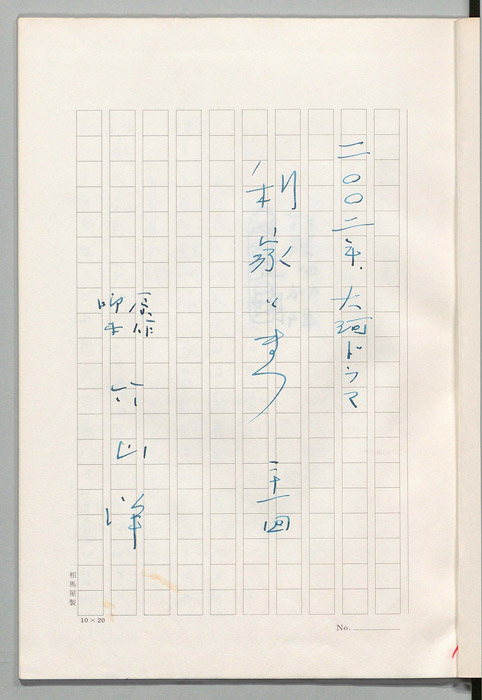 二〇〇二年、大河ドラマ
利家とまつ 二十一回
原作
脚本 竹山洋
相馬屋製
10×20
No.